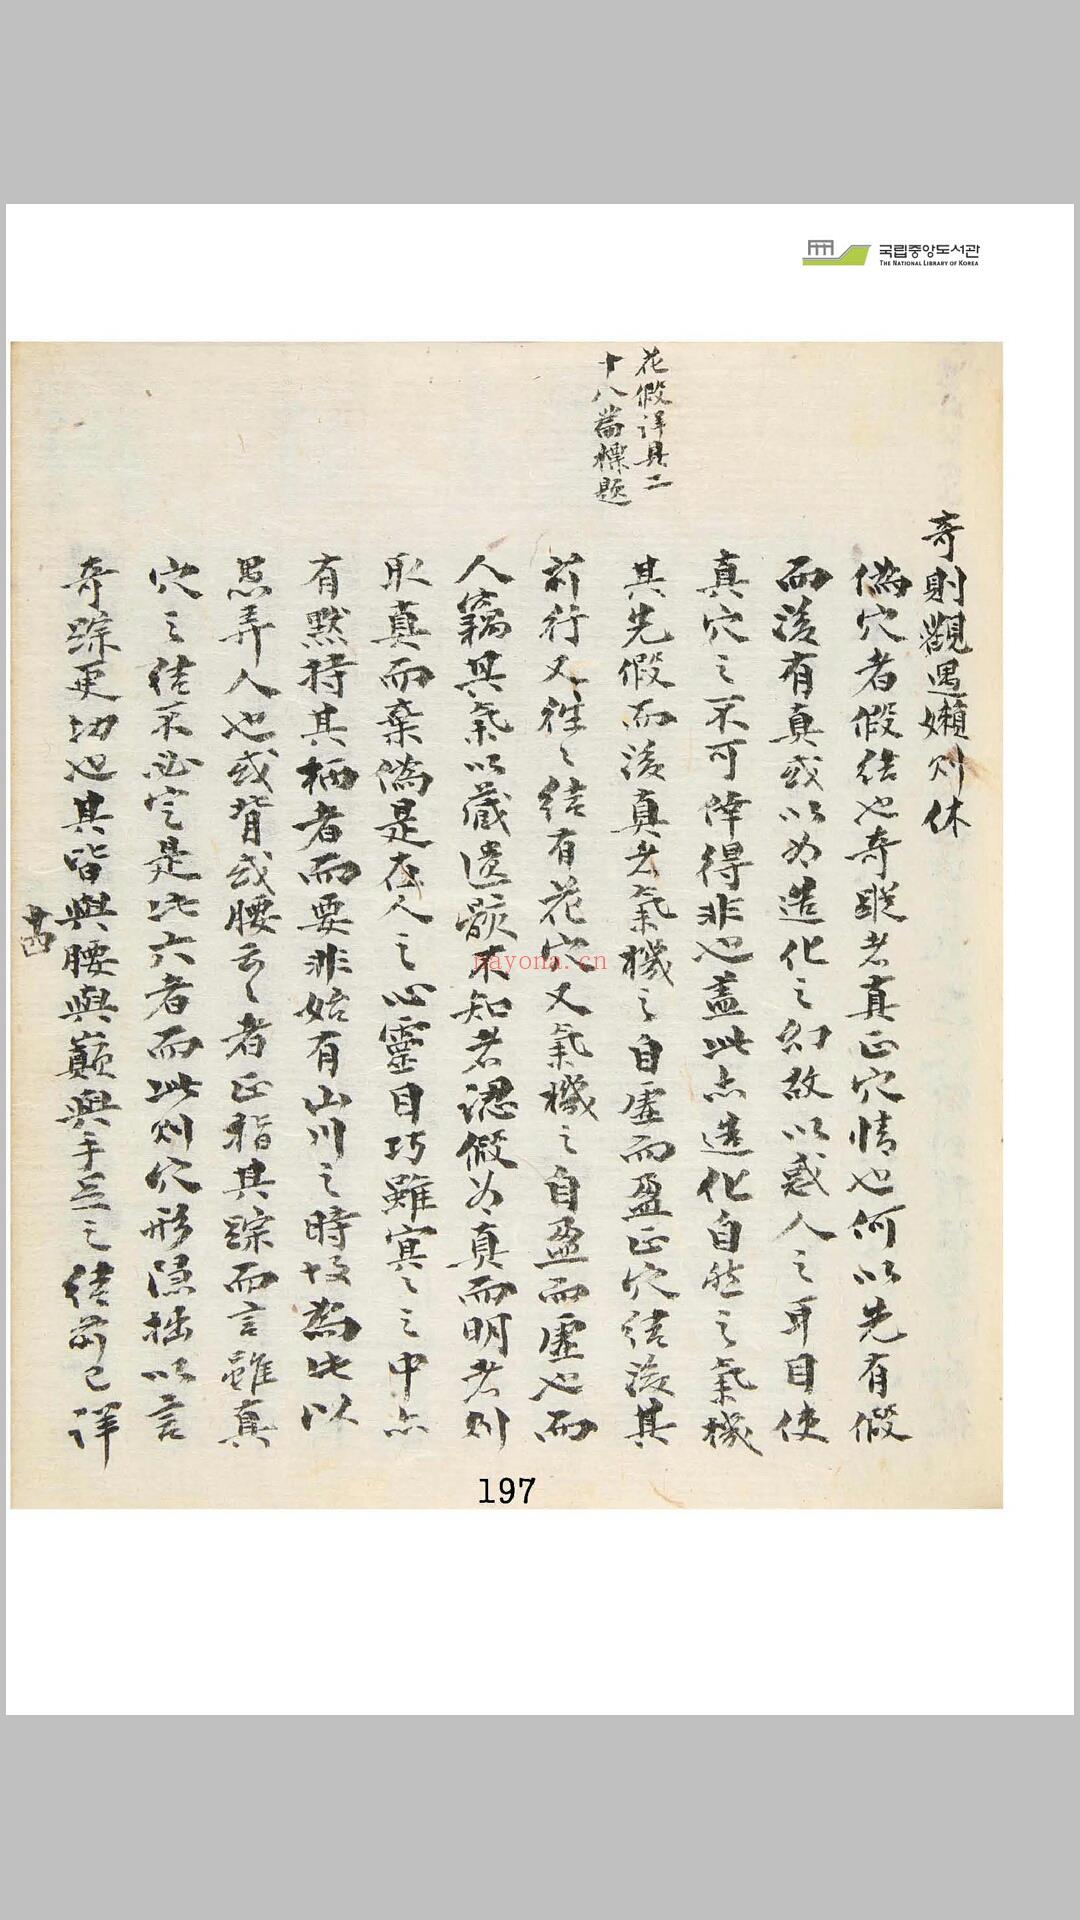 국립중앙도서관
THE NATIONAL LIBRARY OF KOREA
花假詳具二
十八篇標題
奇則觀遇嬾則休
偽穴者假结也奇蹤者真正穴情也何以先有假
而後有真或以为造化之幻故以惑人之耳目使
真穴之不可倖得非也盖此亦造化自然之氣機
其先假而後真者氣機之自虛而盈正穴结後其
前行又往〻结有花穴又氣機之自盈而虛也而
人竊其氣以藏遗骸不知者認假为真而明者則
取真而棄偽是在人之心靈目巧雖冥〻之中亦
有默持其柄者而要非始有山川之時故為此以
愚弄人也或背或腰云〻者正指其踪而言雖真
穴之结不必定是此六者而此則穴形隐拙以言
奇踪更切也其背與腰與巔與手足之结前已詳
廿四
nayona.cn
197